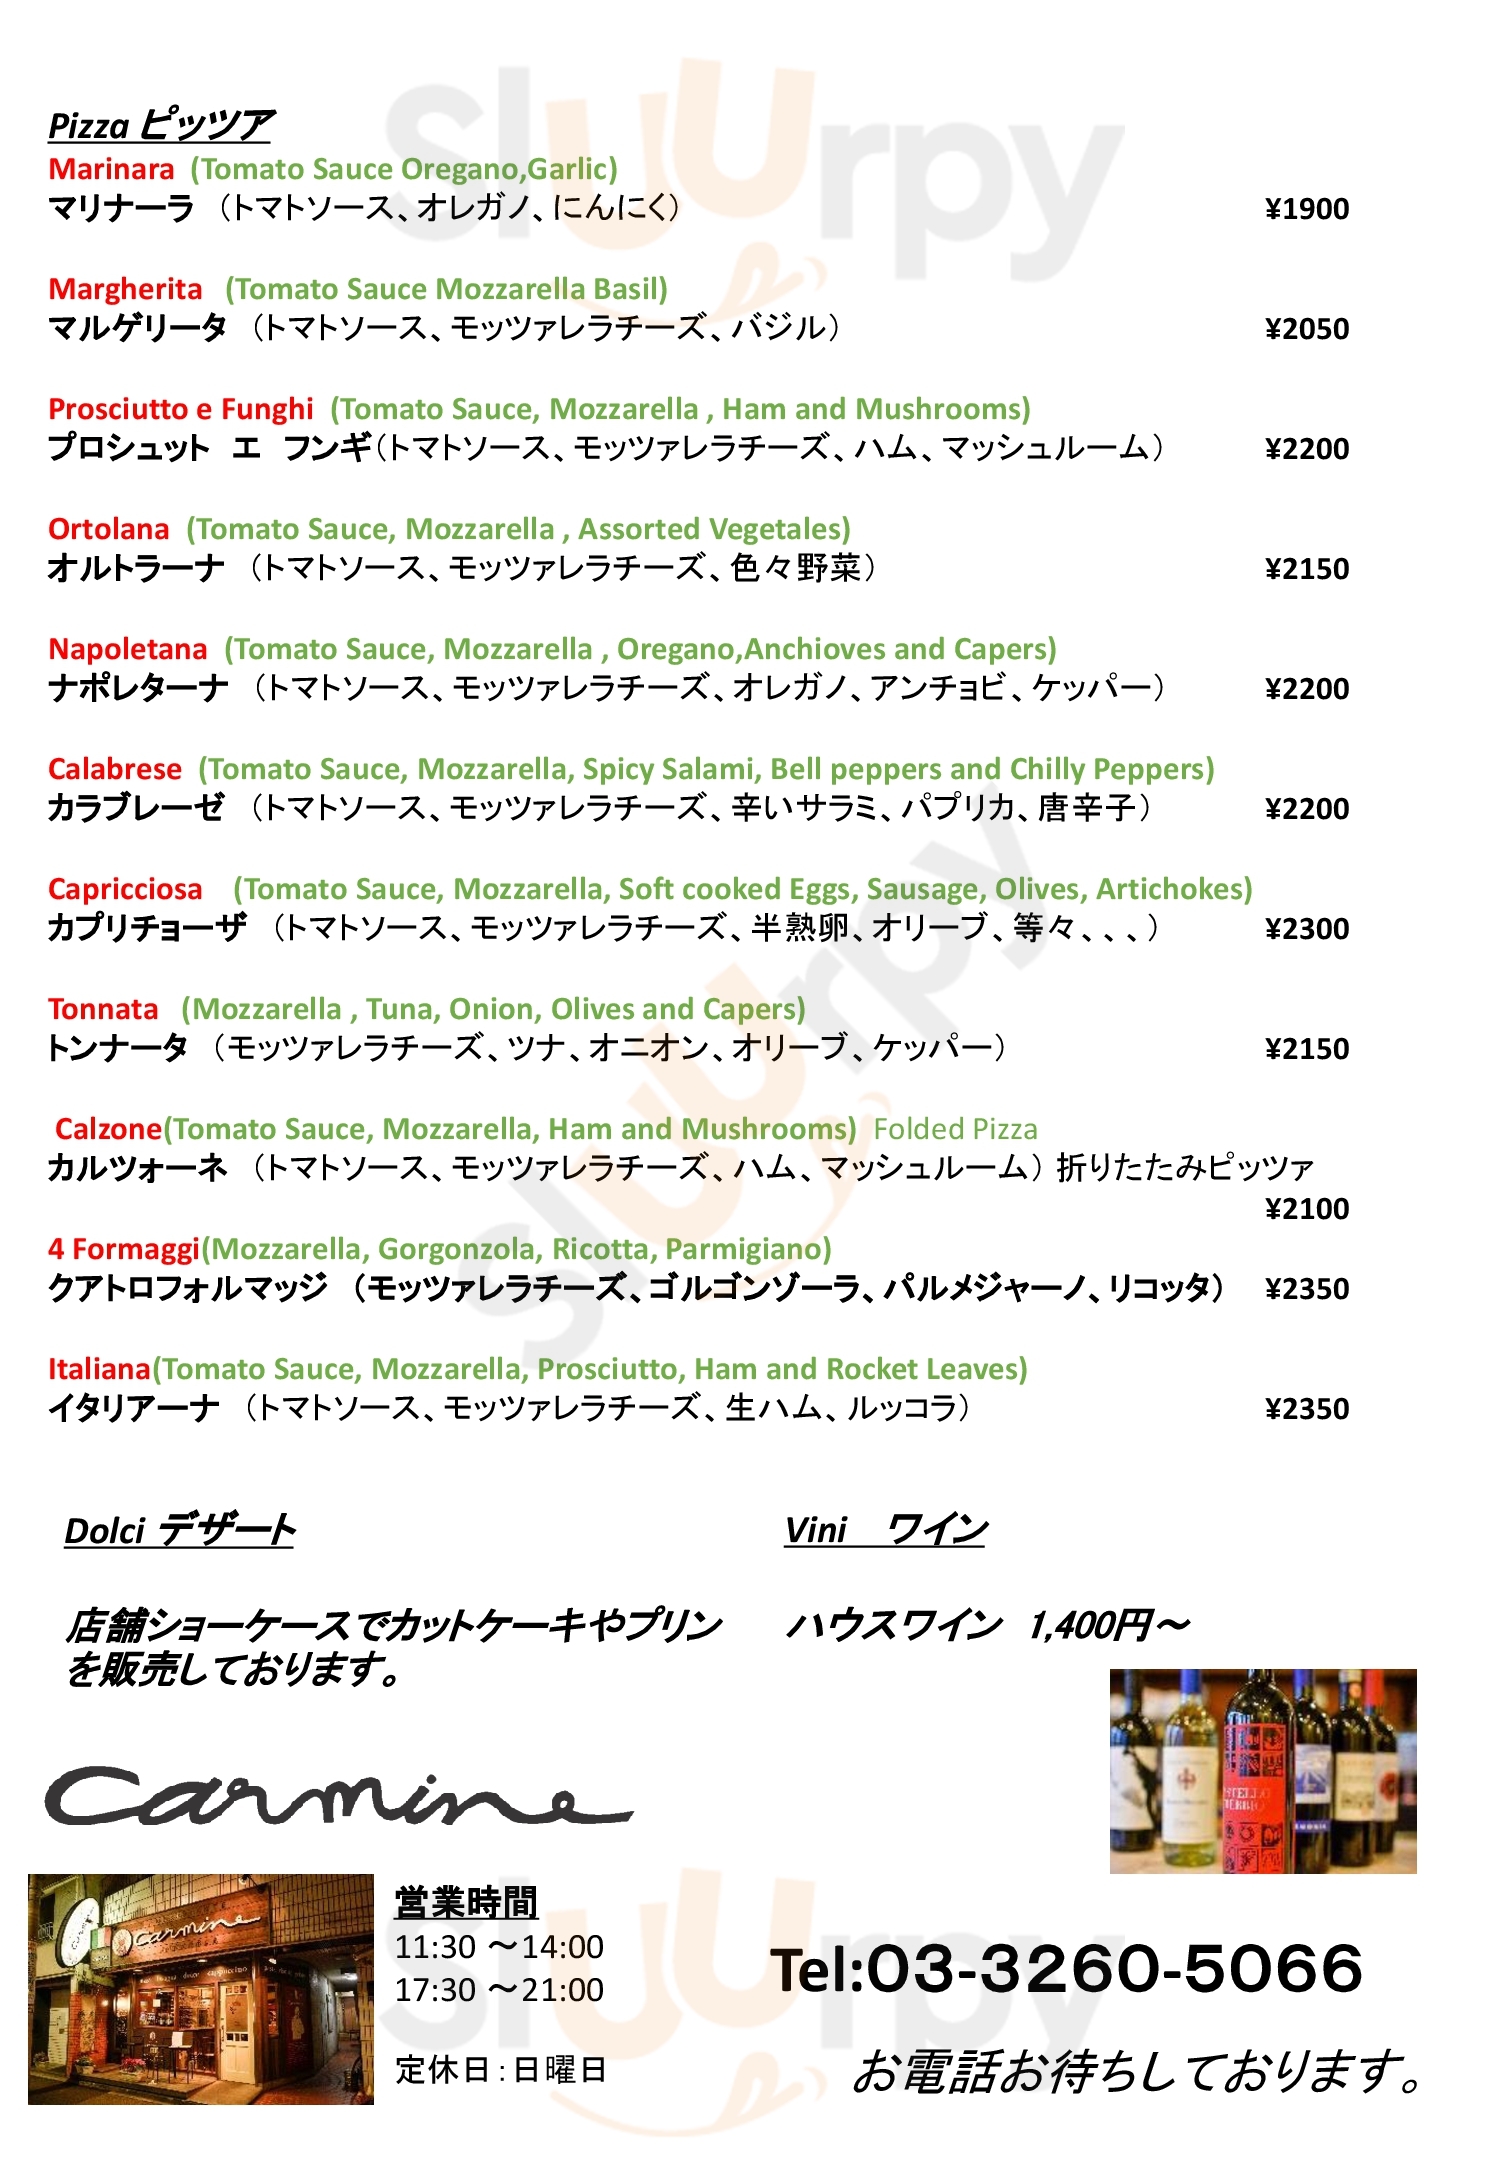 Pizza ピッツア
Marinara (Tomato Sauce Oregano,Garlic)
マリナーラ （トマトソース、オレガノ、にんにく） ¥1900
Margherita (Tomato Sauce Mozzarella Basil)
マルゲリータ （トマトソース、モッツァレラチーズ、バジル） ¥2050
Prosciutto e Funghi (Tomato Sauce, Mozzarella , Ham and Mushrooms)
プロシュット エ フンギ（トマトソース、モッツァレラチーズ、ハム、マッシュルーム） ¥2200
Ortolana (Tomato Sauce, Mozzarella , Assorted Vegetales)
オルトラーナ （トマトソース、モッツァレラチーズ、色々野菜） ¥2150
Napoletana (Tomato Sauce, Mozzarella , Oregano,Anchioves and Capers)
ナポレターナ （トマトソース、モッツァレラチーズ、オレガノ、アンチョビ、ケッパー） ¥2200
Calabrese (Tomato Sauce, Mozzarella, Spicy Salami, Bell peppers and Chilly Peppers)
カラブレーゼ （トマトソース、モッツァレラチーズ、辛いサラミ、パプリカ、唐辛子） ¥2200
Capricciosa (Tomato Sauce, Mozzarella, Soft cooked Eggs, Sausage, Olives, Artichokes)
カプリチョーザ （トマトソース、モッツァレラチーズ、半熟卵、オリーブ、等々、、、） ¥2300
Tonnata (Mozzarella , Tuna, Onion, Olives and Capers)
トンナータ （モッツァレラチーズ、ツナ、オニオン、オリーブ、ケッパー） ¥2150
Calzone(Tomato Sauce, Mozzarella, Ham and Mushrooms) Folded Pizza
カルツォーネ （トマトソース、モッツァレラチーズ、ハム、マッシュルーム） 折りたたみピッツァ
¥2100
4 Formaggi(Mozzarella, Gorgonzola, Ricotta, Parmigiano)
クアトロフォルマッジ （モッツァレラチーズ、ゴルゴンゾーラ、パルメジャーノ、リコッタ） ¥2350
Italiana(Tomato Sauce, Mozzarella, Prosciutto, Ham and Rocket Leaves)
イタリアーナ （トマトソース、モッツァレラチーズ、生ハム、ルッコラ） ¥2350
Dolci デザート
店舗ショーケースでカットケーキやプリン
を販売しております。
Vini ワイン
ハウスワイン 1,400円～
carmine
carmine
営業時間
11:30 ～14:00
17:30 ～21:00
定休日：日曜日
Tel:03-3260-5066
お電話お待ちしております。
Sluurpy
Sluurpy
Sluurpy